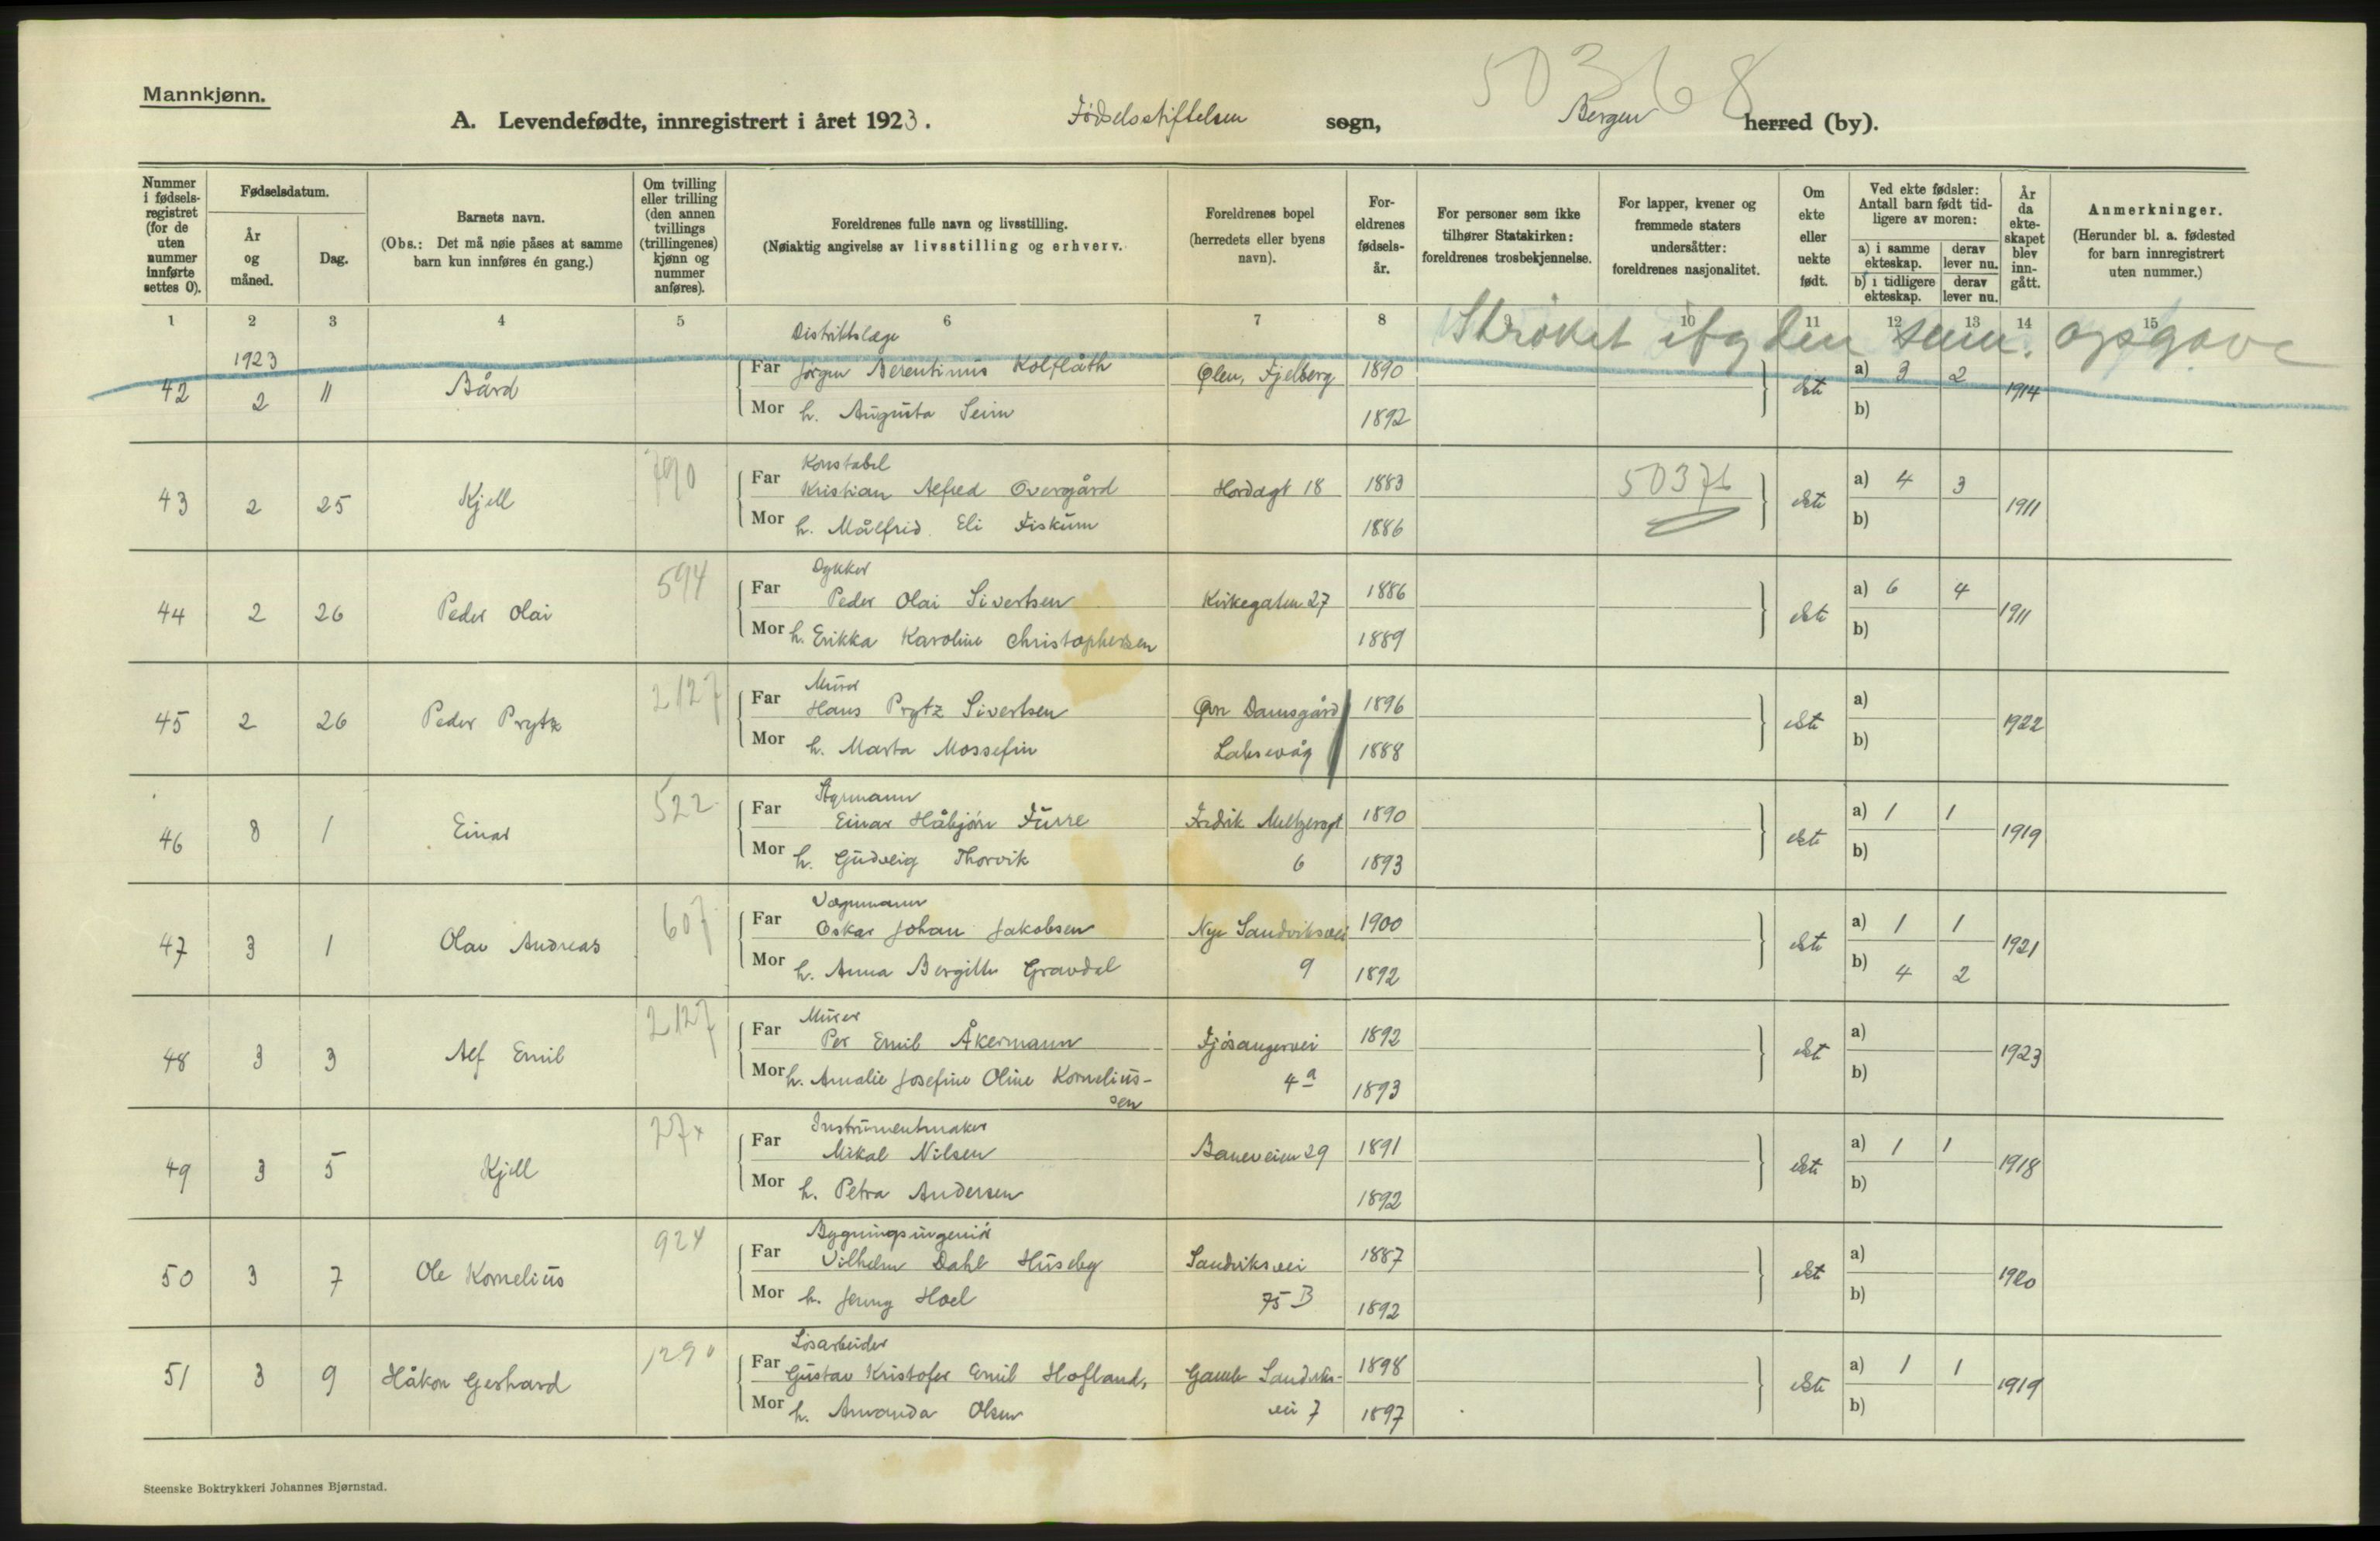 50368
Mannkjønn.
A. Levendefødte, innregistrert i året 1923. Fødselsstiftelsen sogn, Bergen herred (by).
Nummer i fødsels-registret (for de uten nummer innførte settes 0).
Fødselsdatum.
År og måned.
Dag.
Barnets navn.
(Obs.: Det må nøie påses at samme barn kun innføres én gang.)
Om tvilling eller trilling (den annen tvillings (trillingenes) kjønn og nummer anføres).
Foreldrenes fulle navn og livsstilling.
(Nøiaktig angivelse av livsstilling og erhverv.
Foreldrenes bopel (herredets eller byens navn).
For-eldrenes fødsels-år.
For personer som ikke tilhører Statskirken: foreldrenes trosbekjennelse.
For lapper, kvener og fremmede staters undersåtter: foreldrenes nasjonalitet.
Om ekte eller uekte født.
Ved ekte fødsler: Antall barn født tid-ligere av moren:
a) i samme ekteskap. derav lever nu.
b) i tidligere ekteskap. derav lever nu.
År da ekte-skapet blev inn-gått.
Anmerkninger.
(Herunder bl. a. fødested for barn innregistrert uten nummer.)
1 2 3 4 5 6 7 8 9 10 11 12 13 14 15
Strøket opgave
1923
Distriktslæge
42 2 11 Bård Far Jørgen Berentinius Kolflåth Ølen, Fjelberg 1890 ekte a) 3 2 1914
Mor h. Augusta Seim 1892 b)
Konstabel
43 2 25 Kjell 790 Far Kristian Alfred Overgård Hordagt 18 1883 50376 ekte a) 4 3 1911
Mor h. Målfrid Eli Fiskum 1886 b)
Dykker
44 2 26 Peder Olai 594 Far Peder Olai Sivertsen Kirkegaten 27 1886 ekte a) 6 4 1911
Mor h. Erikka Karoline Christophersen 1889 b)
Murer
45 2 26 Peder Prytz 2127 Far Hans Prytz Sivertsen Øvre Damsgård 1896 ekte a) 1922
Mor h. Marta Mossefin Laksevåg 1888 b)
Styrmann
46 8 1 Einar 522 Far Einar Håbjørn Furre Fredrik Meltzersgt 1890 ekte a) 1 1 1919
Mor h. Gudveig Thorvik 6 1893 b)
Vognmann
47 3 1 Olav Andreas 607 Far Oskar Johan Jakobsen Nye Sandviksvei 1900 ekte a) 1 1 1921
Mor h. Anna Bergitte Gravdal 9 1892 b) 4 2
Murer
48 3 3 Alf Emil 2127 Far Per Emil Åkermann Fjøsangervei 1892 ekte a) 1923
Mor h. Amalie Josefine Oline Kornelius- 4a 1893 b)
sen
Instrumentmaker
49 3 5 Kjell Far Mikal Nilsen Baneveien 29 1891 ekte a) 1 1 1918
Mor h. Petra Andersen 1892 b)
Bygningsingeniør
50 3 7 Ole Kornelius 924 Far Vilhelm Dahl Huseby Sandviksvei 1887 ekte a) 1920
Mor h. Jenny Hoel 75 B 1892 b)
Løsarbeider
51 3 9 Håkon Gerhard Far Gustav Kristofer Emil Hofland, Gamle Sandviks- 1898 ekte a) 1 1 1919
Mor h. Amanda Olsen vei 7 1897 b)
Steenske Boktrykkeri Johannes Bjørnstad.